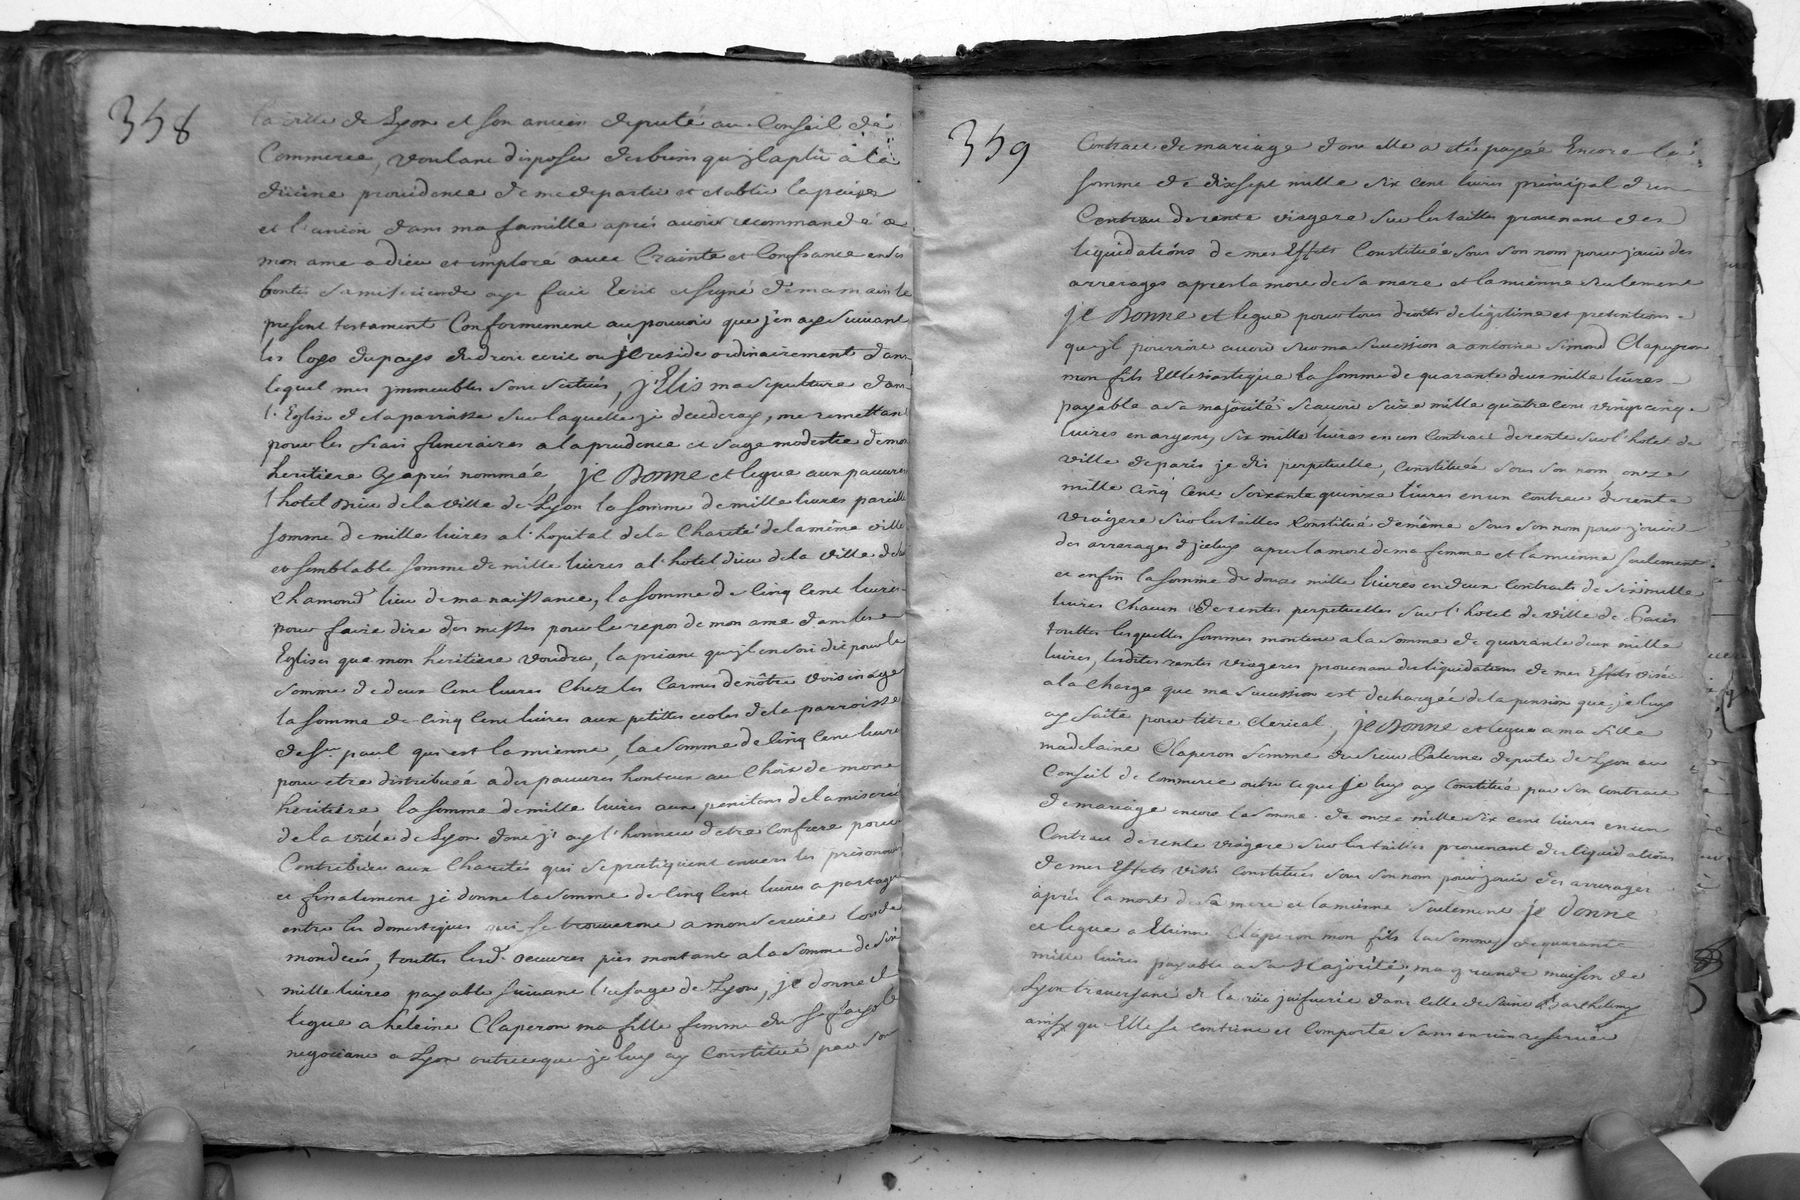 358
la ville de Lyon et son ancien deputé au Conseil de
Commerce, voulant disposer des biens qu'il a plû a la
divine providence de me departir et etablir la paix
et l'union dans ma famille apres avoir recommandé a
mon ame a dieu et imploré avec Crainte et Confiance en ses
bontés sa misericorde ay fait Ecrit et signé de ma main le
present testament Conformement au pouvoir que j'en ay suivant
les loys du pays de droit ecrit ou je reside ordinairement dans
lequel mes jmmeubles sont scitués, j'Elis ma sepulture dans
l'Eglise de la parroisse sur laquelle je decederay, me remettant
pour les frais funeraires a la prudence et sage modestie de mon
heritiere Cy après nommée, je Donne et legue aux pauvres
l'hotel Dieu de la ville de Lyon la somme de mille livres pareille
somme de mille livres a l'hopital de la Charité de la même ville
et semblable somme de mille livres a l'hotel dieu de la ville de
Chamond lieu de ma naissance, la somme de Cinq Cent livres
pour faire dire des messes pour le repos de mon ame dans les
Eglises que mon heritiere voudra, la priant qu'il en soit dit pour la
somme de deux Cent livres Chez les Carmes de nôtre voisinage
la somme de Cinq Cent livres aux petites ecoles de la parroisse
de St paul qui est la mienne, la somme de Cinq Cent livres
pour etre distribuée a des pauvres honteux au Choix de mon
heritiere la somme de mille livres aux penitens de la misericorde
de la ville de Lyon dont j'ay l'honneur d'etre Confrere pour
Contribuer aux Charités qui se pratiquent envers les prisonniers
et finalement je donne la somme de Cinq Cent livres a partager
entre les domestiques qui se trouveront a mon service lors de
mon deces, touttes lesd. oeuvres pies montant a la somme de six
mille livres payable suivant l'usage de Lyon, je donne et
legue a heleine Claperon ma fille femme du Sr fayolle
negociant a Lyon outre ce que je luy ay Constitué par son
359
Contract de mariage dont elle a eté payée Encore la
somme de dixsept mille six cent livres principal d'un
Contract de rente viagere sur les tailles provenant des
liquidations de mes Effets Constituée sous son nom pour jouir des
arrerages apres la mort de sa mere et la mienne seulement
je Donne et legue pour tous droits de legitime et pretentions
qu'jl pourroit avoir sur ma succession a antoine simond Claperon
mon fils Ecclesiastique la somme de quarante deux mille livres
payable a sa majorité scavoir seize mille quatre cent vingt cinq
livres en argent, six mille livres en un Contract de rente sur l'hotel de
ville de paris je dis perpetuelle, Constituée sous son nom, onze
mille cinq cent soixante quinze livres en un contract de rente
viagere sur les tailles Constitué de même sous son nom pour jouir
des arrerages d'jceluy apres la mort de ma femme et la mienne seulement
et enfin la somme de douze mille livres en deux Contrats de six mille
livres Chacun de rentes perpetuelles sur l'hotel de ville de Paris
touttes lesquelles sommes montent a la somme de quarante deux mille
livres, lesdites rentes viageres provenant des liquidations de mes Effets visés
a la Charge que ma succession est dechargée de la pension que je luy
ay faite pour titre Clerical, je Donne et legue a ma fille
madelaine Claperon femme du sieur Palerne deputé de Lyon au
Conseil de Commerce outre ce que je luy ay Constitué par son Contract
de mariage encore la somme de onze mille six cent livres en un
Contract de rente viagere sur les tailles provenant des liquidations
de mes Effets visés Constituées sous son nom pour jouir des arrerages
après la mort de sa mere et la mienne seulement je donne
et legue a Etienne Claperon mon fils la somme de quarante
mille livres payable a sa Majorité, ma grande maison de
Lyon traversant de la rüe juifverie dans celle de saint Barthelemy
ainsy qu'Elle se contient et Comporte sans en rien reserver